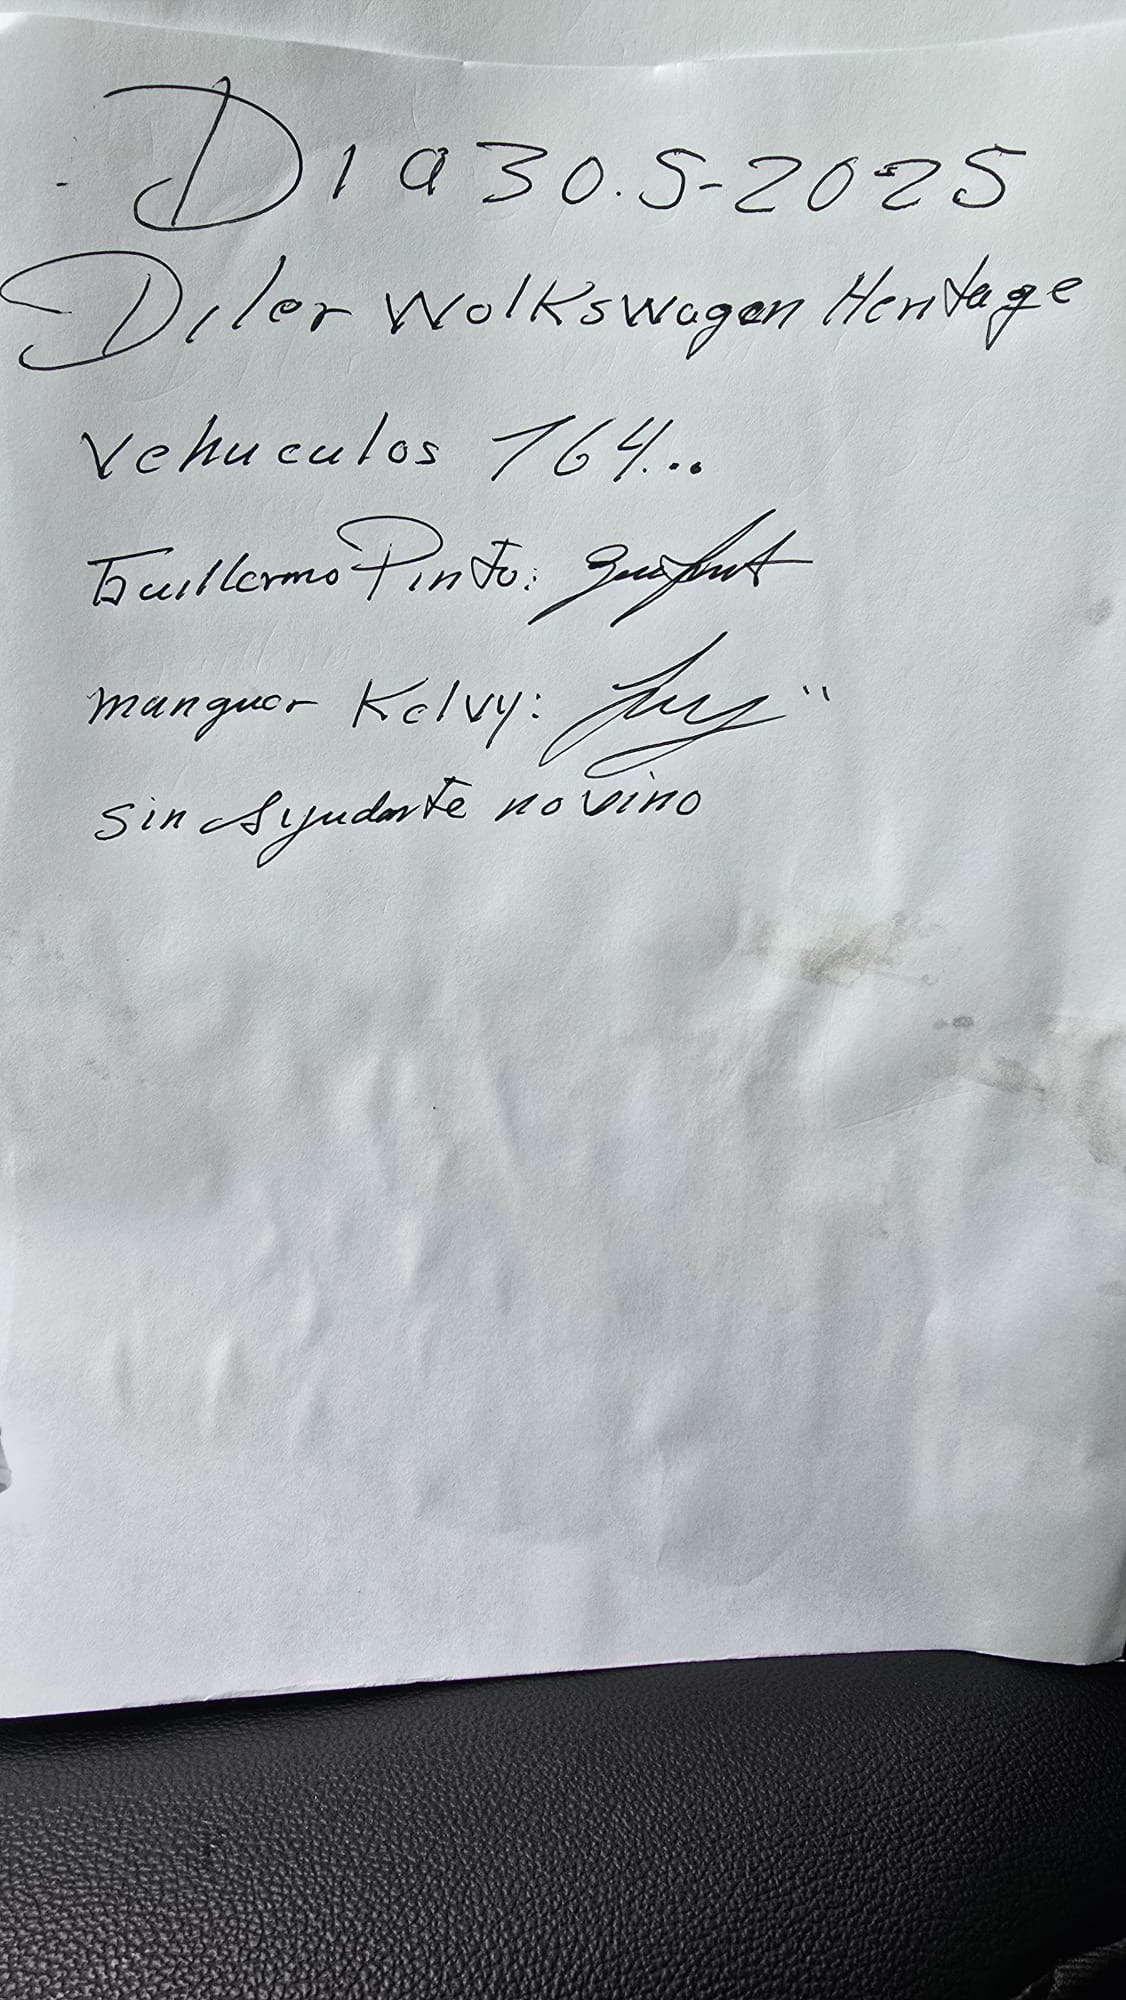 Dia 30.5-2025
Diler Wolkswagen Heritage
Vehuculos 164...
Guillermo Pinto:
manguer Kelvy:
sin Ayudante no vino